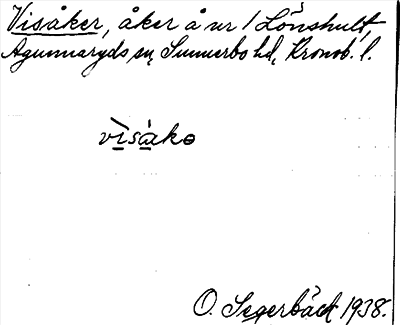 Visåker, åker å nr 1 Lönshult,
Agunnaryds sn, Sunnerbo hd, Kronob. l.
O. Segerbäck 1938.